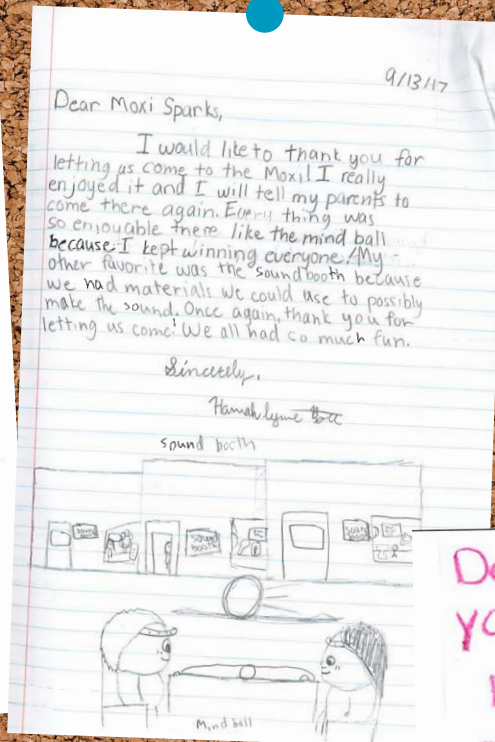 9/13/17
Dear Moxi Sparks,
I would like to thank you for
letting us come to the Moxi! I really
enjoyed it and I will tell my parents to
come there again. Every thing was
so enjoyable there like the mind ball
because I kept winning everyone! My
other favorite was the soundbooth because
we had materials we could use to possibly
make the sound. Once again, thank you for
letting us come! We all had so much fun.
Sincerely,
Hannah lynne
sound booth
sound booth
Mind ball